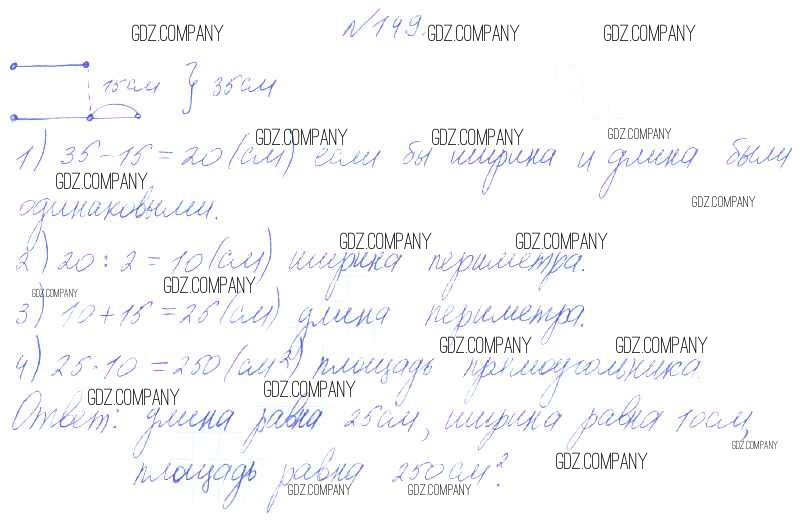 №149.
15см } 35см
1) 35-15=20(см) если бы ширина и длина были
одинаковыми.
2) 20:2=10(см) ширина периметра.
3) 10+15=25(см) длина периметра.
4) 25·10=250(см²) площадь прямоугольника.
Ответ: длина равна 25см, ширина равна 10см,
площадь равна 250см².
GDZ.COMPANY GDZ.COMPANY GDZ.COMPANY
GDZ.COMPANY GDZ.COMPANY GDZ.COMPANY
GDZ.COMPANY GDZ.COMPANY
GDZ.COMPANY GDZ.COMPANY
GDZ.COMPANY GDZ.COMPANY
GDZ.COMPANY GDZ.COMPANY
GDZ.COMPANY GDZ.COMPANY
GDZ.COMPANY GDZ.COMPANY
GDZ.COMPANY GDZ.COMPANY